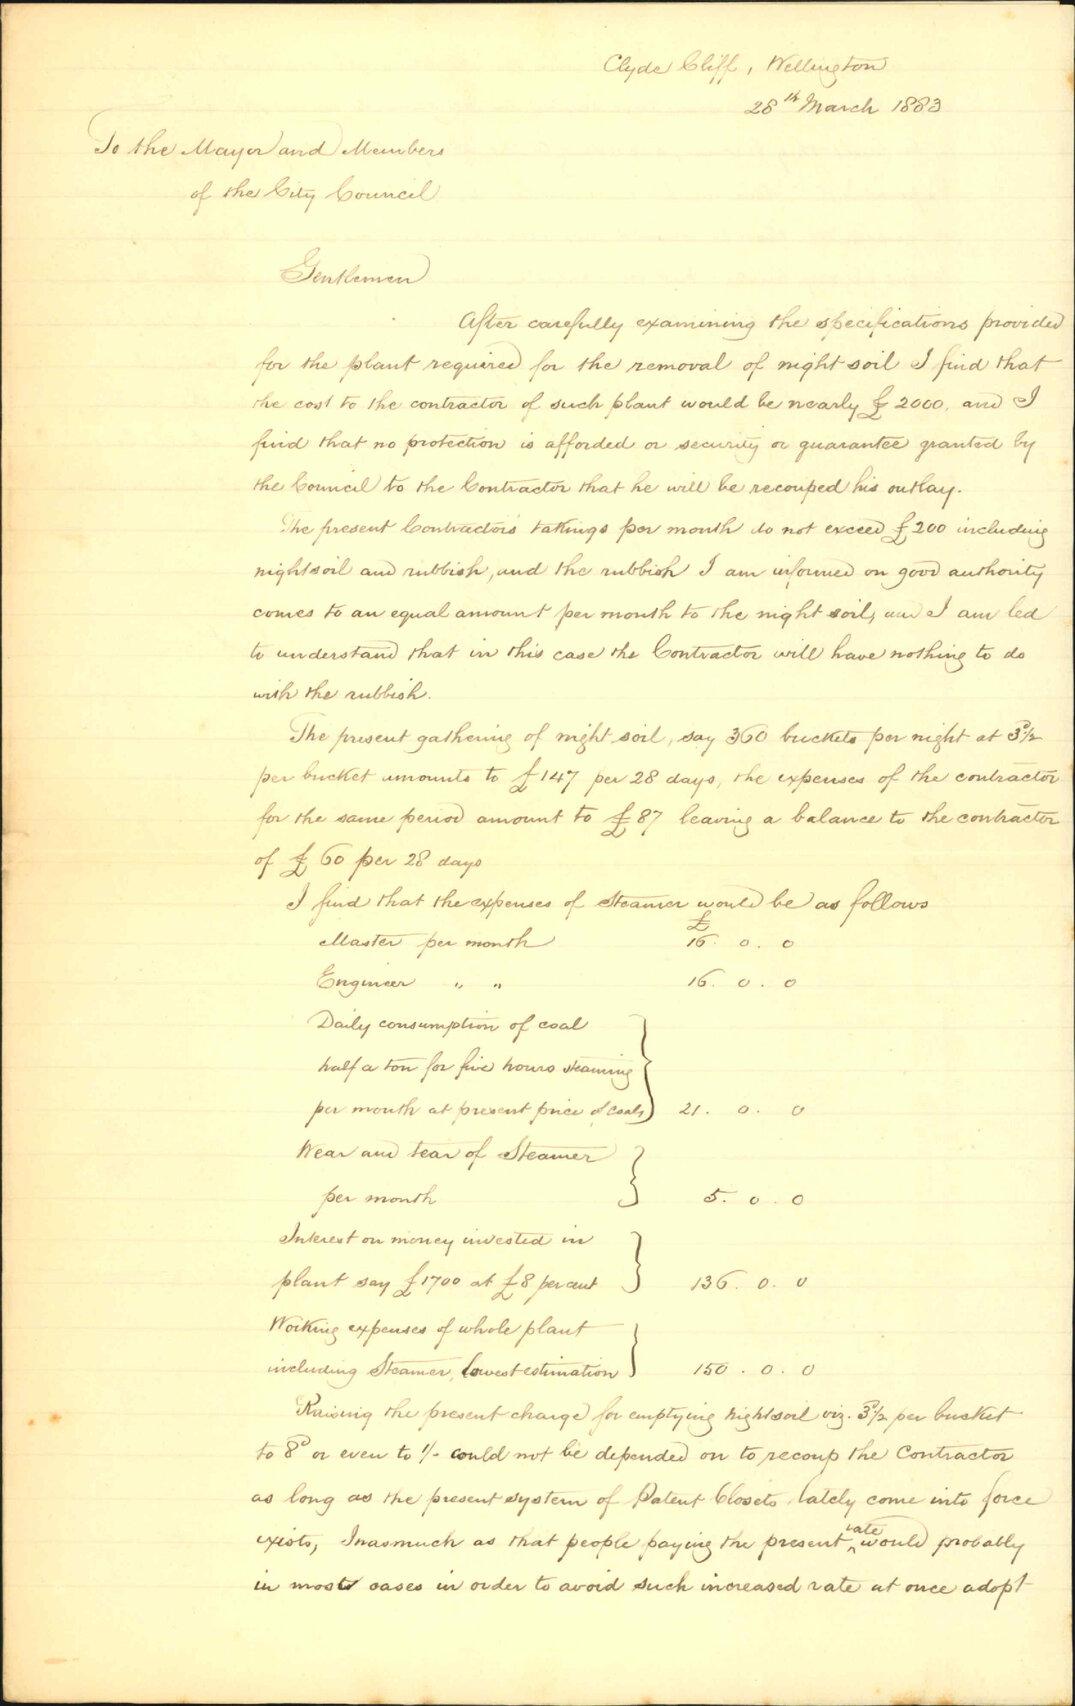 Clyde Cliff, Wellington
28th March 1883
To the Mayor and Members
of the City Council
Gentlemen
After carefully examining the specifications provided
for the plant required for the removal of night soil I find that
the cost to the contractor of such plant would be nearly £2000, and I
find that no protection is afforded or security or guarantee granted by
the Council to the Contractor that he will be recouped his outlay.
The present Contractors takings per month do not exceed £200 including
nightsoil and rubbish, and the rubbish I am informed on good authority
comes to an equal amount per month to the night soil, and I am led
to understand that in this case the Contractor will have nothing to do
with the rubbish.
The present gathering of night soil, say 360 buckets per night at 3½d
per bucket amounts to £147 per 28 days, the expenses of the contractor
for the same period amount to £87 leaving a balance to the contractor
of £60 per 28 days
I find that the expenses of Steamer would be as follows
£
Master per month 16. 0. 0
Engineer " " 16. 0. 0
Daily consumption of coal
half a ton for five hours steaming
per month at present price of coals } 21. 0. 0
Wear and tear of Steamer
per month } 5. 0. 0
Interest on money invested in
plant say £1700 at £8 per cent } 136. 0. 0
Working expenses of whole plant
including Steamer, lowest estimation } 150. 0. 0
Raising the present charge for emptying nightsoil viz. 3½d per bucket
to 8d or even to 1/- could not be depended on to recoup the Contractor
as long as the present system of Patent Closets lately come into force
exists, Inasmuch as that people paying the present rate would probably
in most cases in order to avoid such increased rate at once adopt